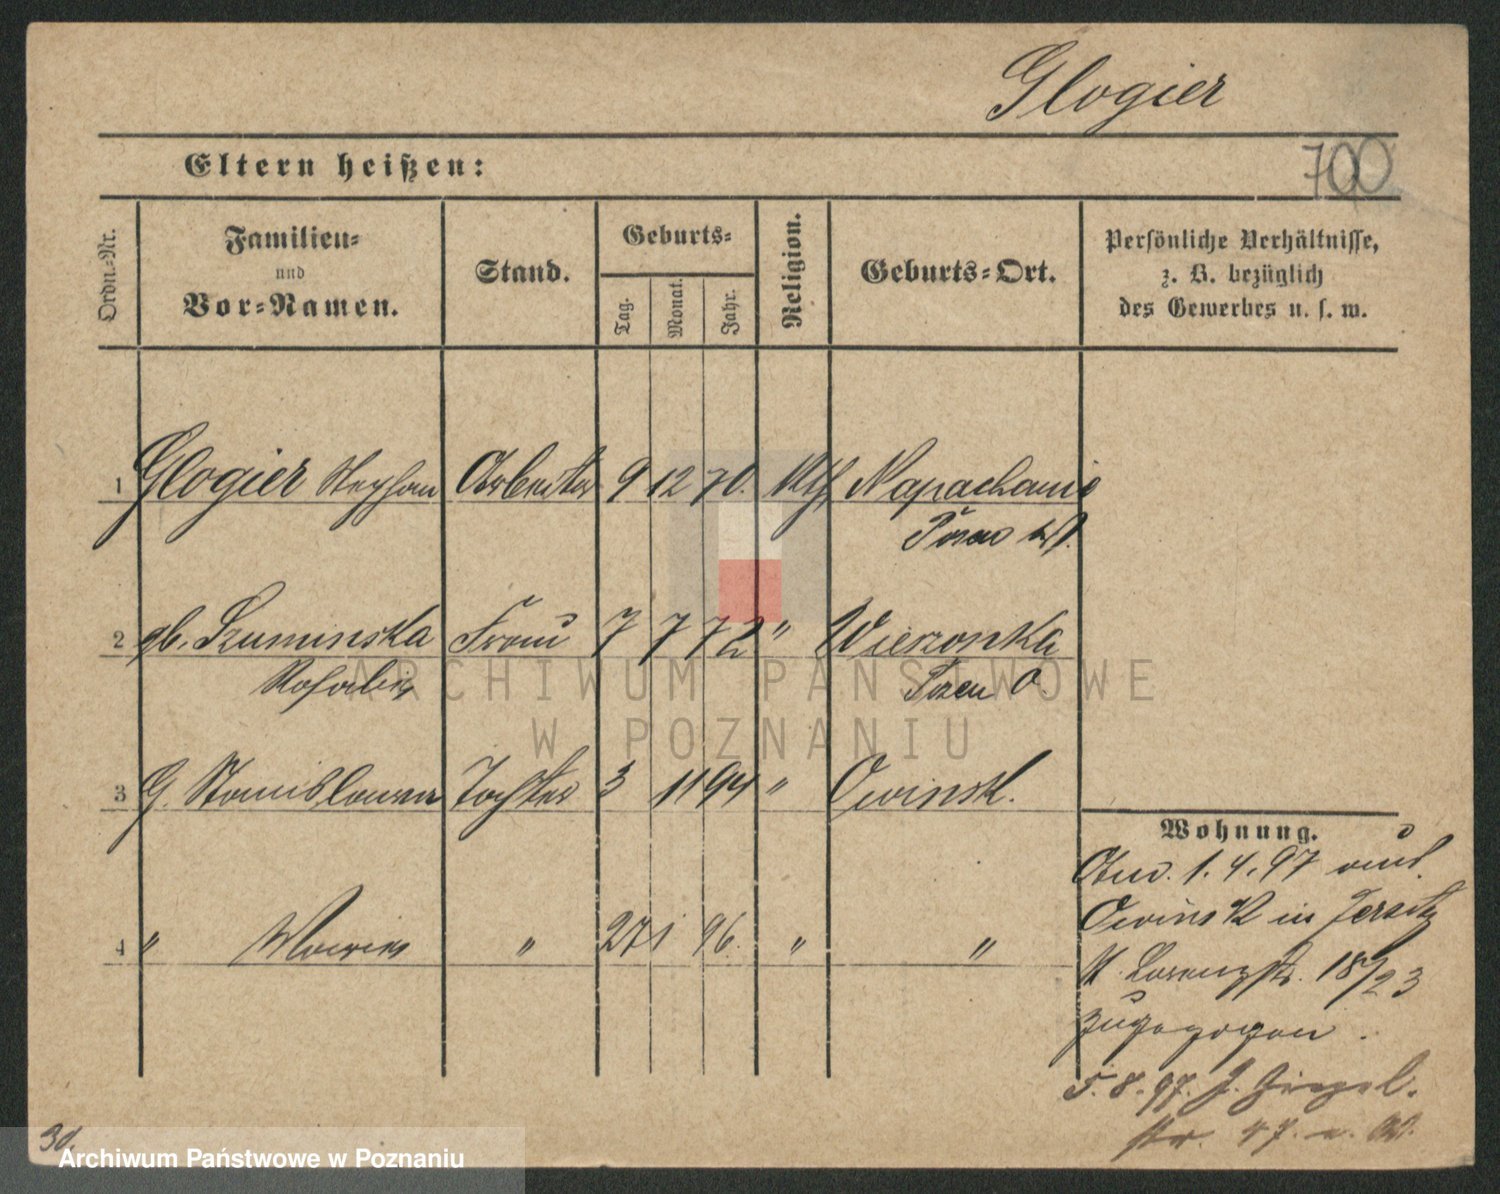 Glogier
Eltern heißen:
700
Ordn.-Nr.
Familien-
und
Vor-Namen.
Stand.
Geburts-
Tag.
Monat.
Jahr.
Religion.
Geburts-Ort.
Persönliche Verhältnisse,
z. B. bezüglich
des Gewerbes u. s. w.
1 Glogier Stephan Arbeiter 9 12 70. kth Napachanie
Posen W.
2 gb. Szuminska Frau 7 7 72 " Wierzonka
Rosalie Posen O.
3 G. Stanislawa Tochter 3 11 94 " Owinsk.
Wohnung.
4 " " 27 1 96 " "
1.4.97 aus
Owinsk in Jersitz
Lorenzstr. 18/23
zugezogen.
5.8.97.
str. 47.
30.
ARCHIWUM PAŃSTWOWE
W POZNANIU
Archiwum Państwowe w Poznaniu